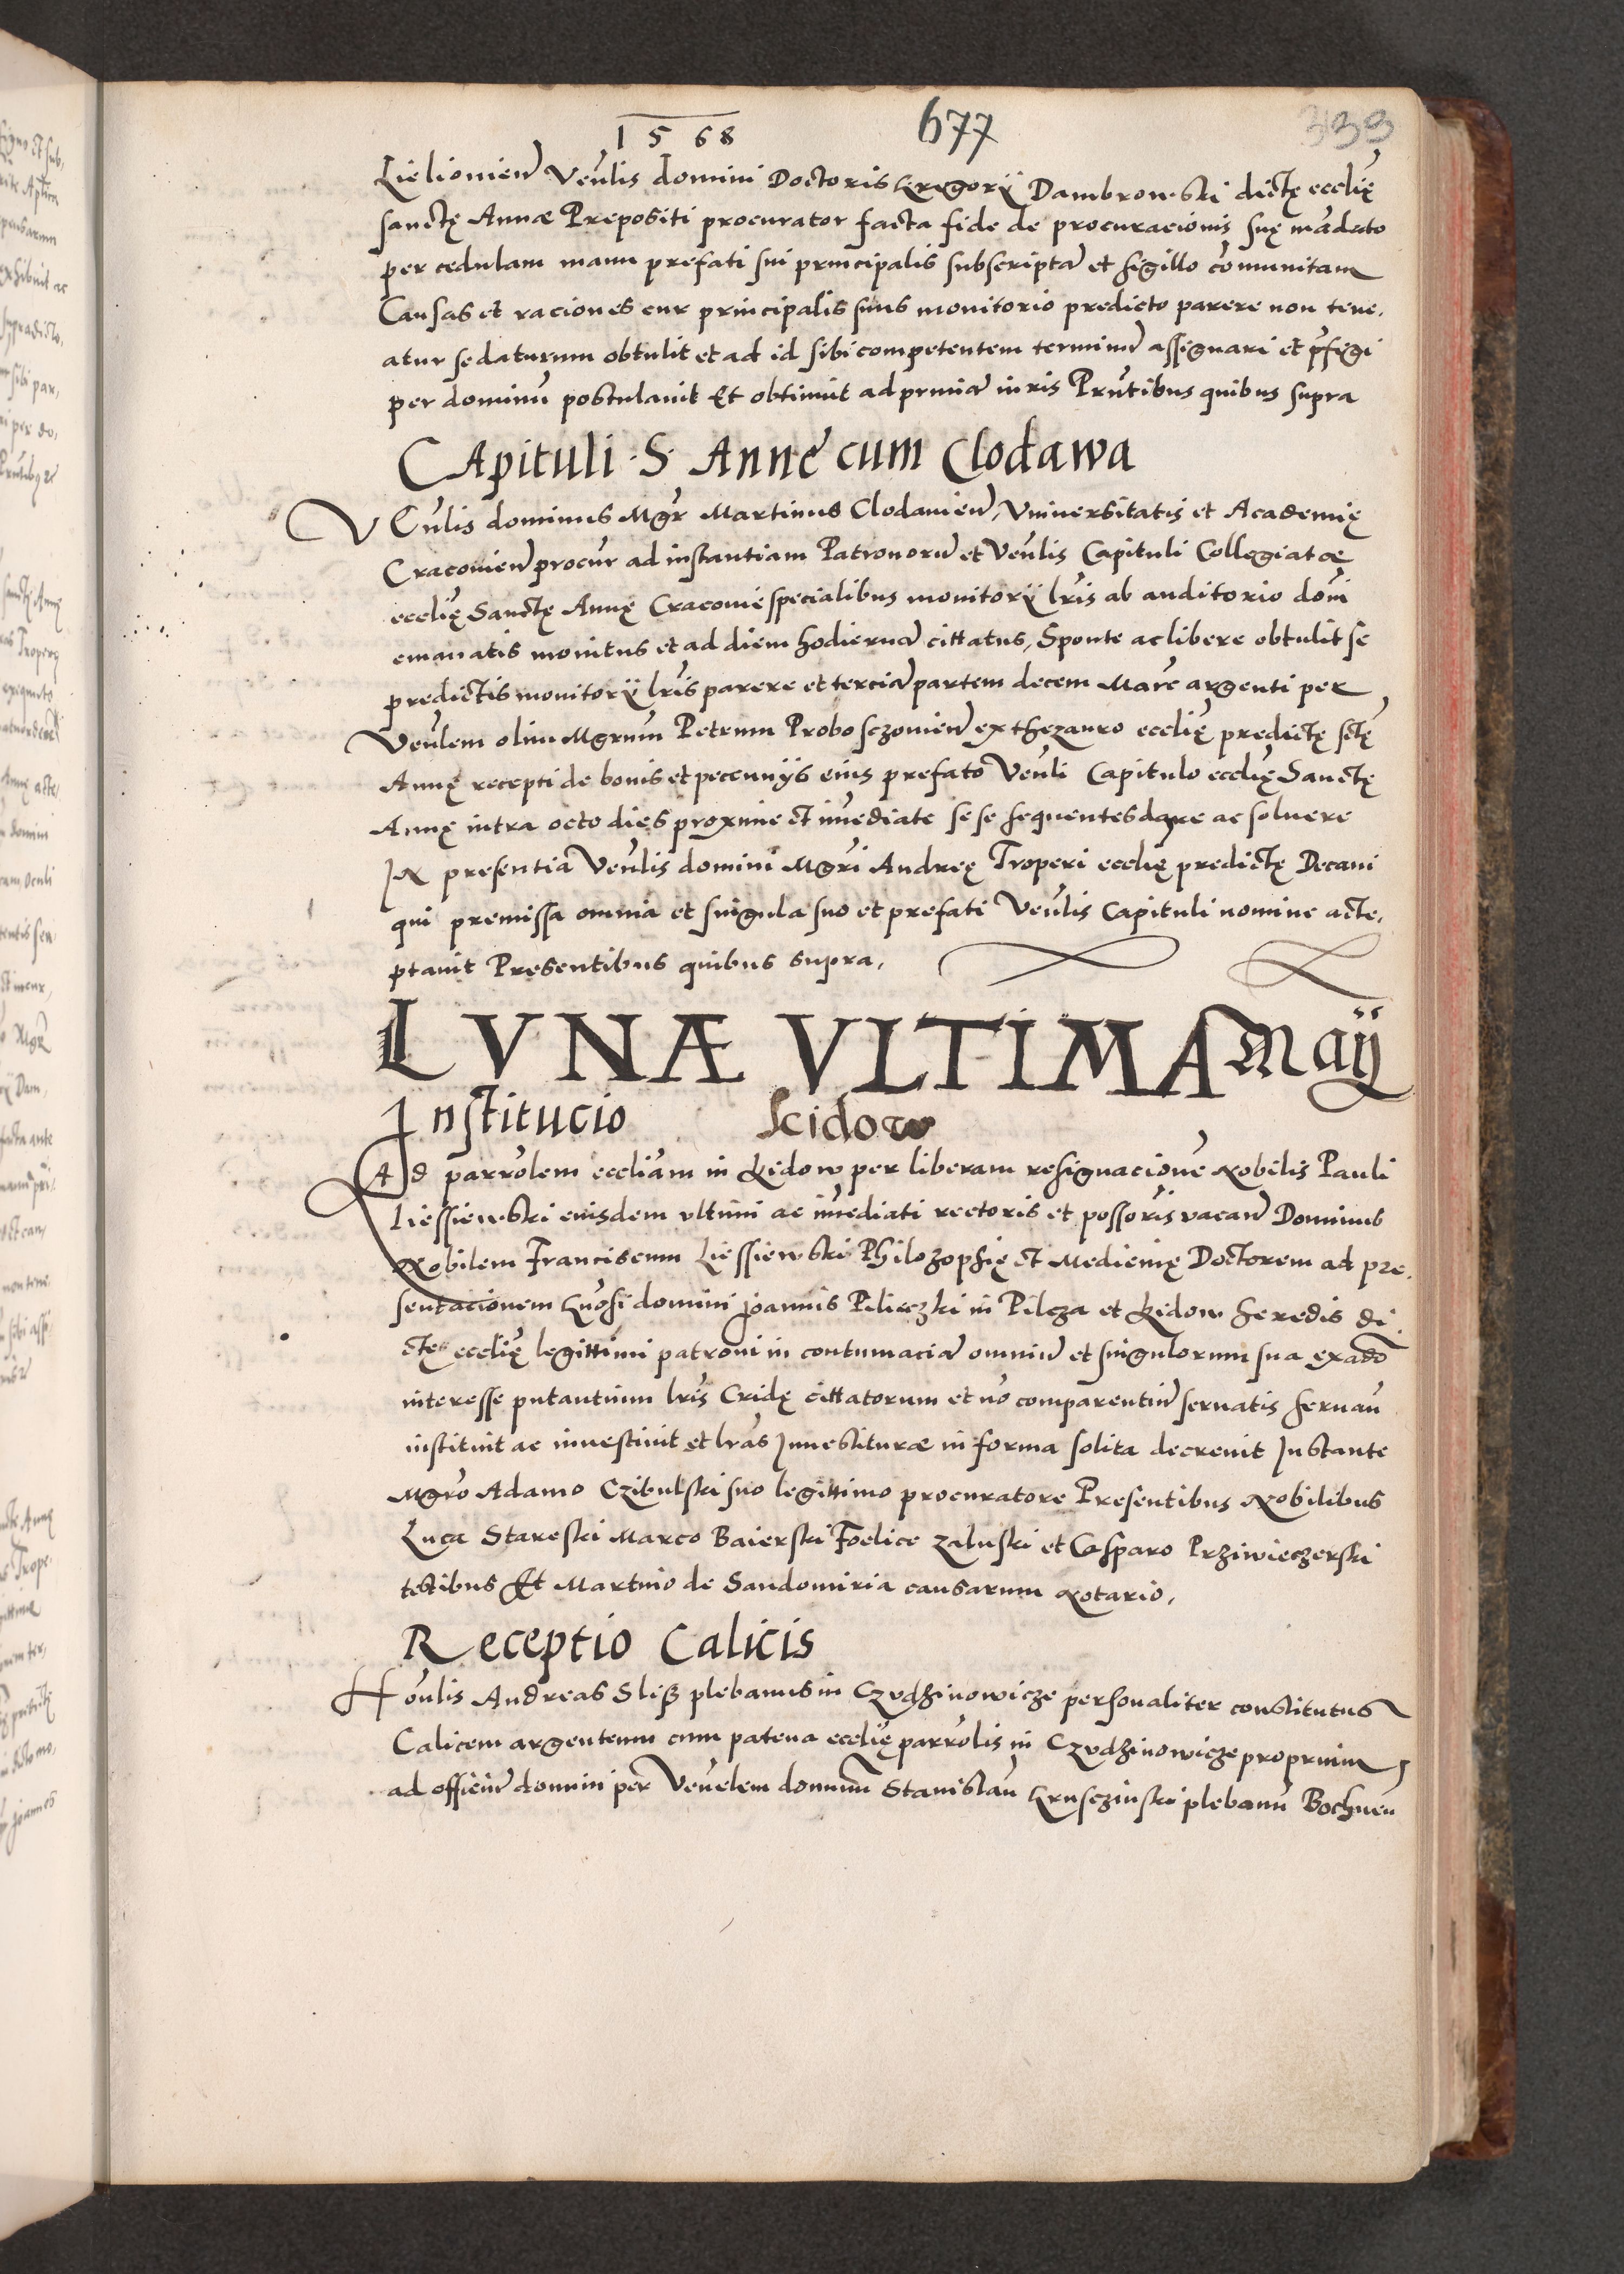 1568
677
333
Lielionień Veńlis domini Doctoris Gregorÿ Dambrowski dictę eccľię
sanctę Annæ Prepositi procurator facta fide de procuracionis suę mãdato
per cedulam manu prefati sui principalis subscriptã et sigillo cõmunitam
Causas et raciones cur principalis suus monitorio predicto parere non tene,
atur se daturum obtulit et ad id sibi competentem terminũ assignari et p̃figi
per dominũ postulavit Et obtinuit ad primã iuris Pñtibus quibus supra
CApituli · S · Anne cum Clodawa
VEńlis dominus Mgr̃ Martinus Clodavień, Vniversitatis et Academię
Cracovień procur̃ ad instantiam Patronorũ et Veńlis Capituli Collegiatæ
eccľię Sanctę Annę Cracovię specialibus monitorÿ lr̃is ab auditorio dom̃
emanatis monitus et ad diem hodiernã cittatus, Sponte ac libere obtulit se
predictis monitorÿ lr̃is parere et terciã partem decem Marc̃ argenti per
Veńlem olim Mgrum̃ Petrum Probosczovień ex thezauro eccľię predictę sctę̃
Annę recepti de bonis et pecunijs eius prefato Veńli Capitulo eccľię Sanctę
Annę intra octo dies proxime et im̃ediate sese sequentes dare ac soluere
IN presentia Veńlis domini Mgr̃i Andreę Troperi eccľię predictę Decani
qui premissa omnia et singula suo et prefati Veńlis Capituli nomine acte,
ptavit Presentibus quibus supra,
LVNÆ VLTIMA Maÿ
Institucio Kidow
Ad parrõlem eccľiam in Kidow per liberam resignacionẽ Nobilis Pauli
Liessiewski eiusdem vltimi ac im̃ediati rectoris et possor̃is vacañ Dominus
Nobilem Franciscum Liessiewski Philozophię et Medicinę Doctorem ad pre,
sentacionem Gñosi domini Joannis Pilieczki in Pilcza et Kidow heredis di,
ctę eccľię legittimi patroni in contumaciã omniũ et singulorum sua ex aďo
interesse putantium lr̃is Cridę cittatorum et nõ comparentiũ servatis servañ
instituit ac investivit et lr̃as Investituræ in forma solita decrevit Instante
Mgr̃o Adamo Czibulski suo legittimo procuratore Presentibus Nobilibus
Luca Stareski Marco Baierski Foelice Zaluski et Casparo Prziwieczerski
testibus Et Martino de Sandomiria causarum Notario,
Receptio Calicis
Hońlis Andreas Sliß plebanus in Czudzinowicze personaliter constitutus
Calicem argenteum cum patena eccľię parrõlis in Czudzinowicze proprium,
ad officiũ domini per Veńelem dominũ Stanislaũ Krusczinski plebanũ Bochneñ